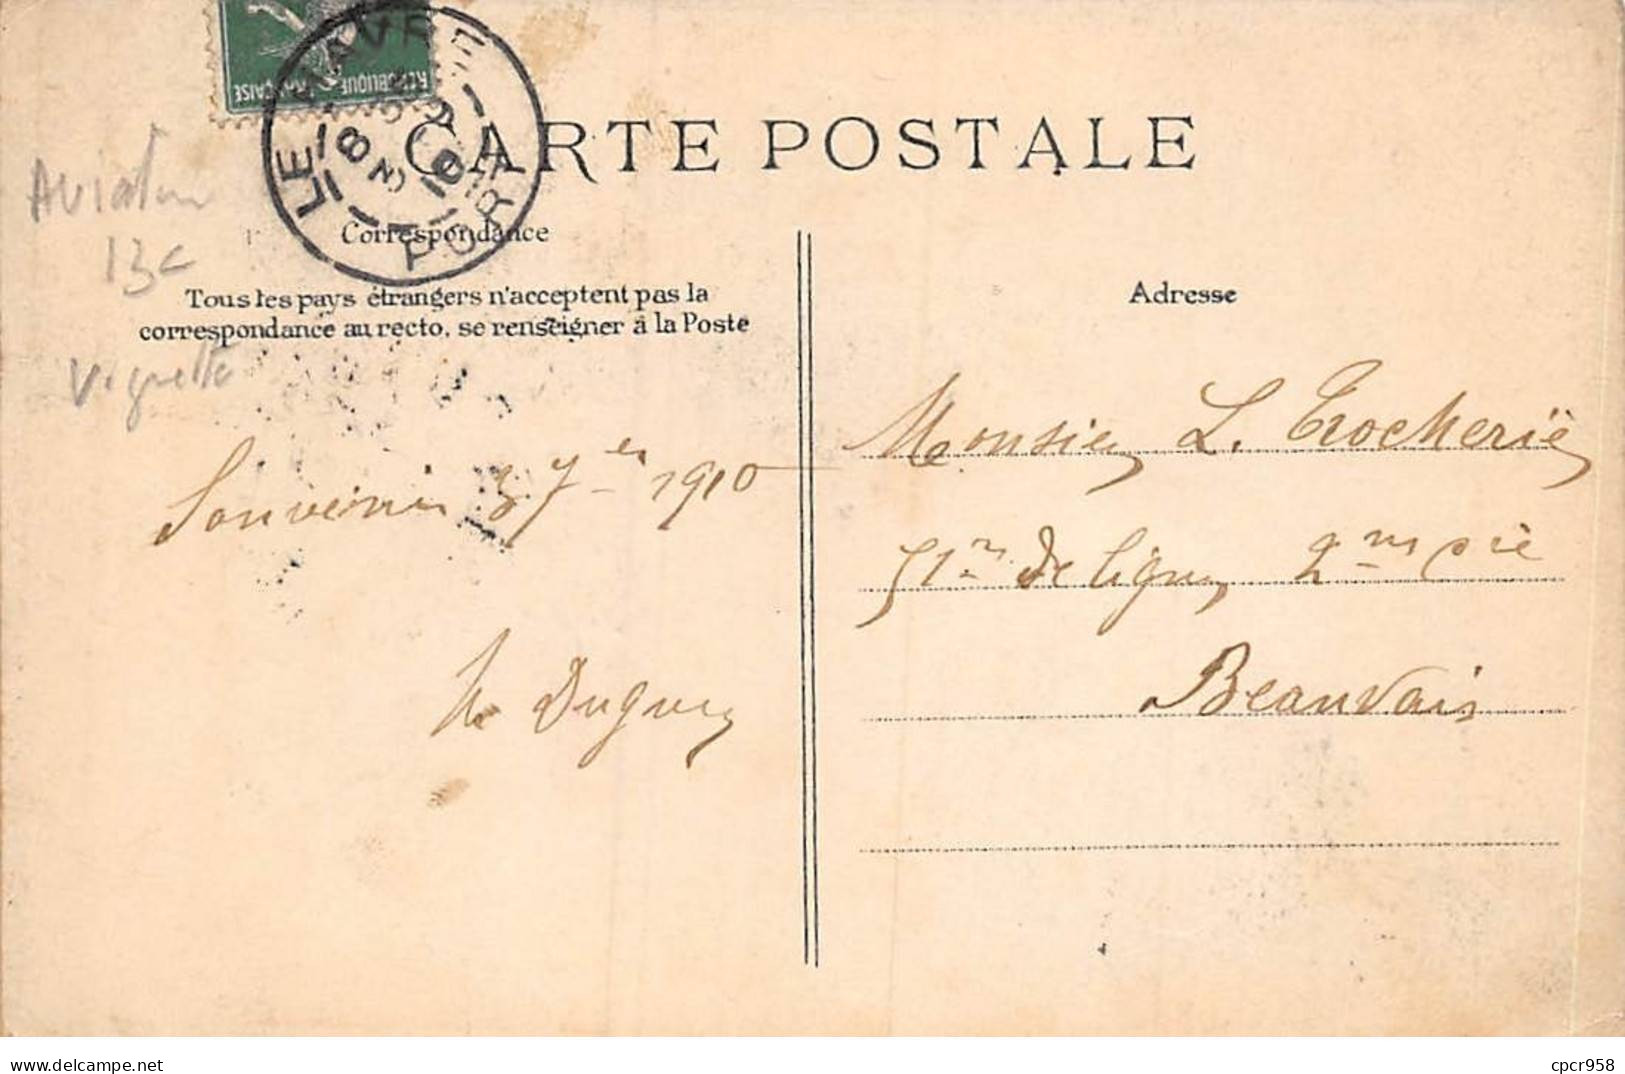 RÉPUBLIQUE FRANÇAISE
LE HAVRE
PORT
CARTE POSTALE
Aviation
13c
Vignette
Correspondance
Tous les pays étrangers n'acceptent pas la
correspondance au recto, se renseigner à la Poste
Souvenir 3 7bre 1910
Duguey
Adresse
Monsieur L. Trocherië
51me De ligne 2me cie
Beauvais
delcampe.net
cpcr958